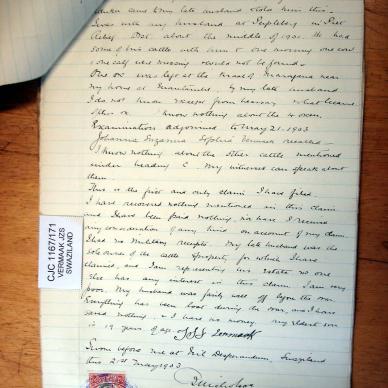 came & my late husband told him this.
I was with my husband at Piepkleig in Piet
Retief Dist. about the middle of 1901. He had
some of his cattle with him & one morning one cow
& one calf were missing & could not be found.
One ox was left at the Kraal of Maragana near
my home at Mantimba, by my late husband.
I do not know except from hearsay what became
of this ox. I know nothing about the 4 oxen.
Examination adjourned to May 21. 1903
Johanna Suzanna Sophia Vermaak recalled—
I know nothing about the other cattle mentioned
under heading C. My witnesses can speak about
them.
This is the first and only claim I have filed.
I have received nothing mentioned in this claim
and I have been paid nothing, nor have I received
any consideration of any kind on account of my claim.
I had no Military receipts. My late husband was the
sole owner of the cattle & property for which I have
claimed, and I am representing his estate no one
else has any interest in this claim. I am very
poor. My husband was fairly well off before the war.
Everything has been lost during the war, and I have
saved nothing, & I have no money. My eldest son
is 19 years of age. JSS Vermaak
Sworn before me at Nil Desperandum, Swaziland
this 21st May 1903
CJC 1167/171
VERMAAK JZS
SWAZILAND